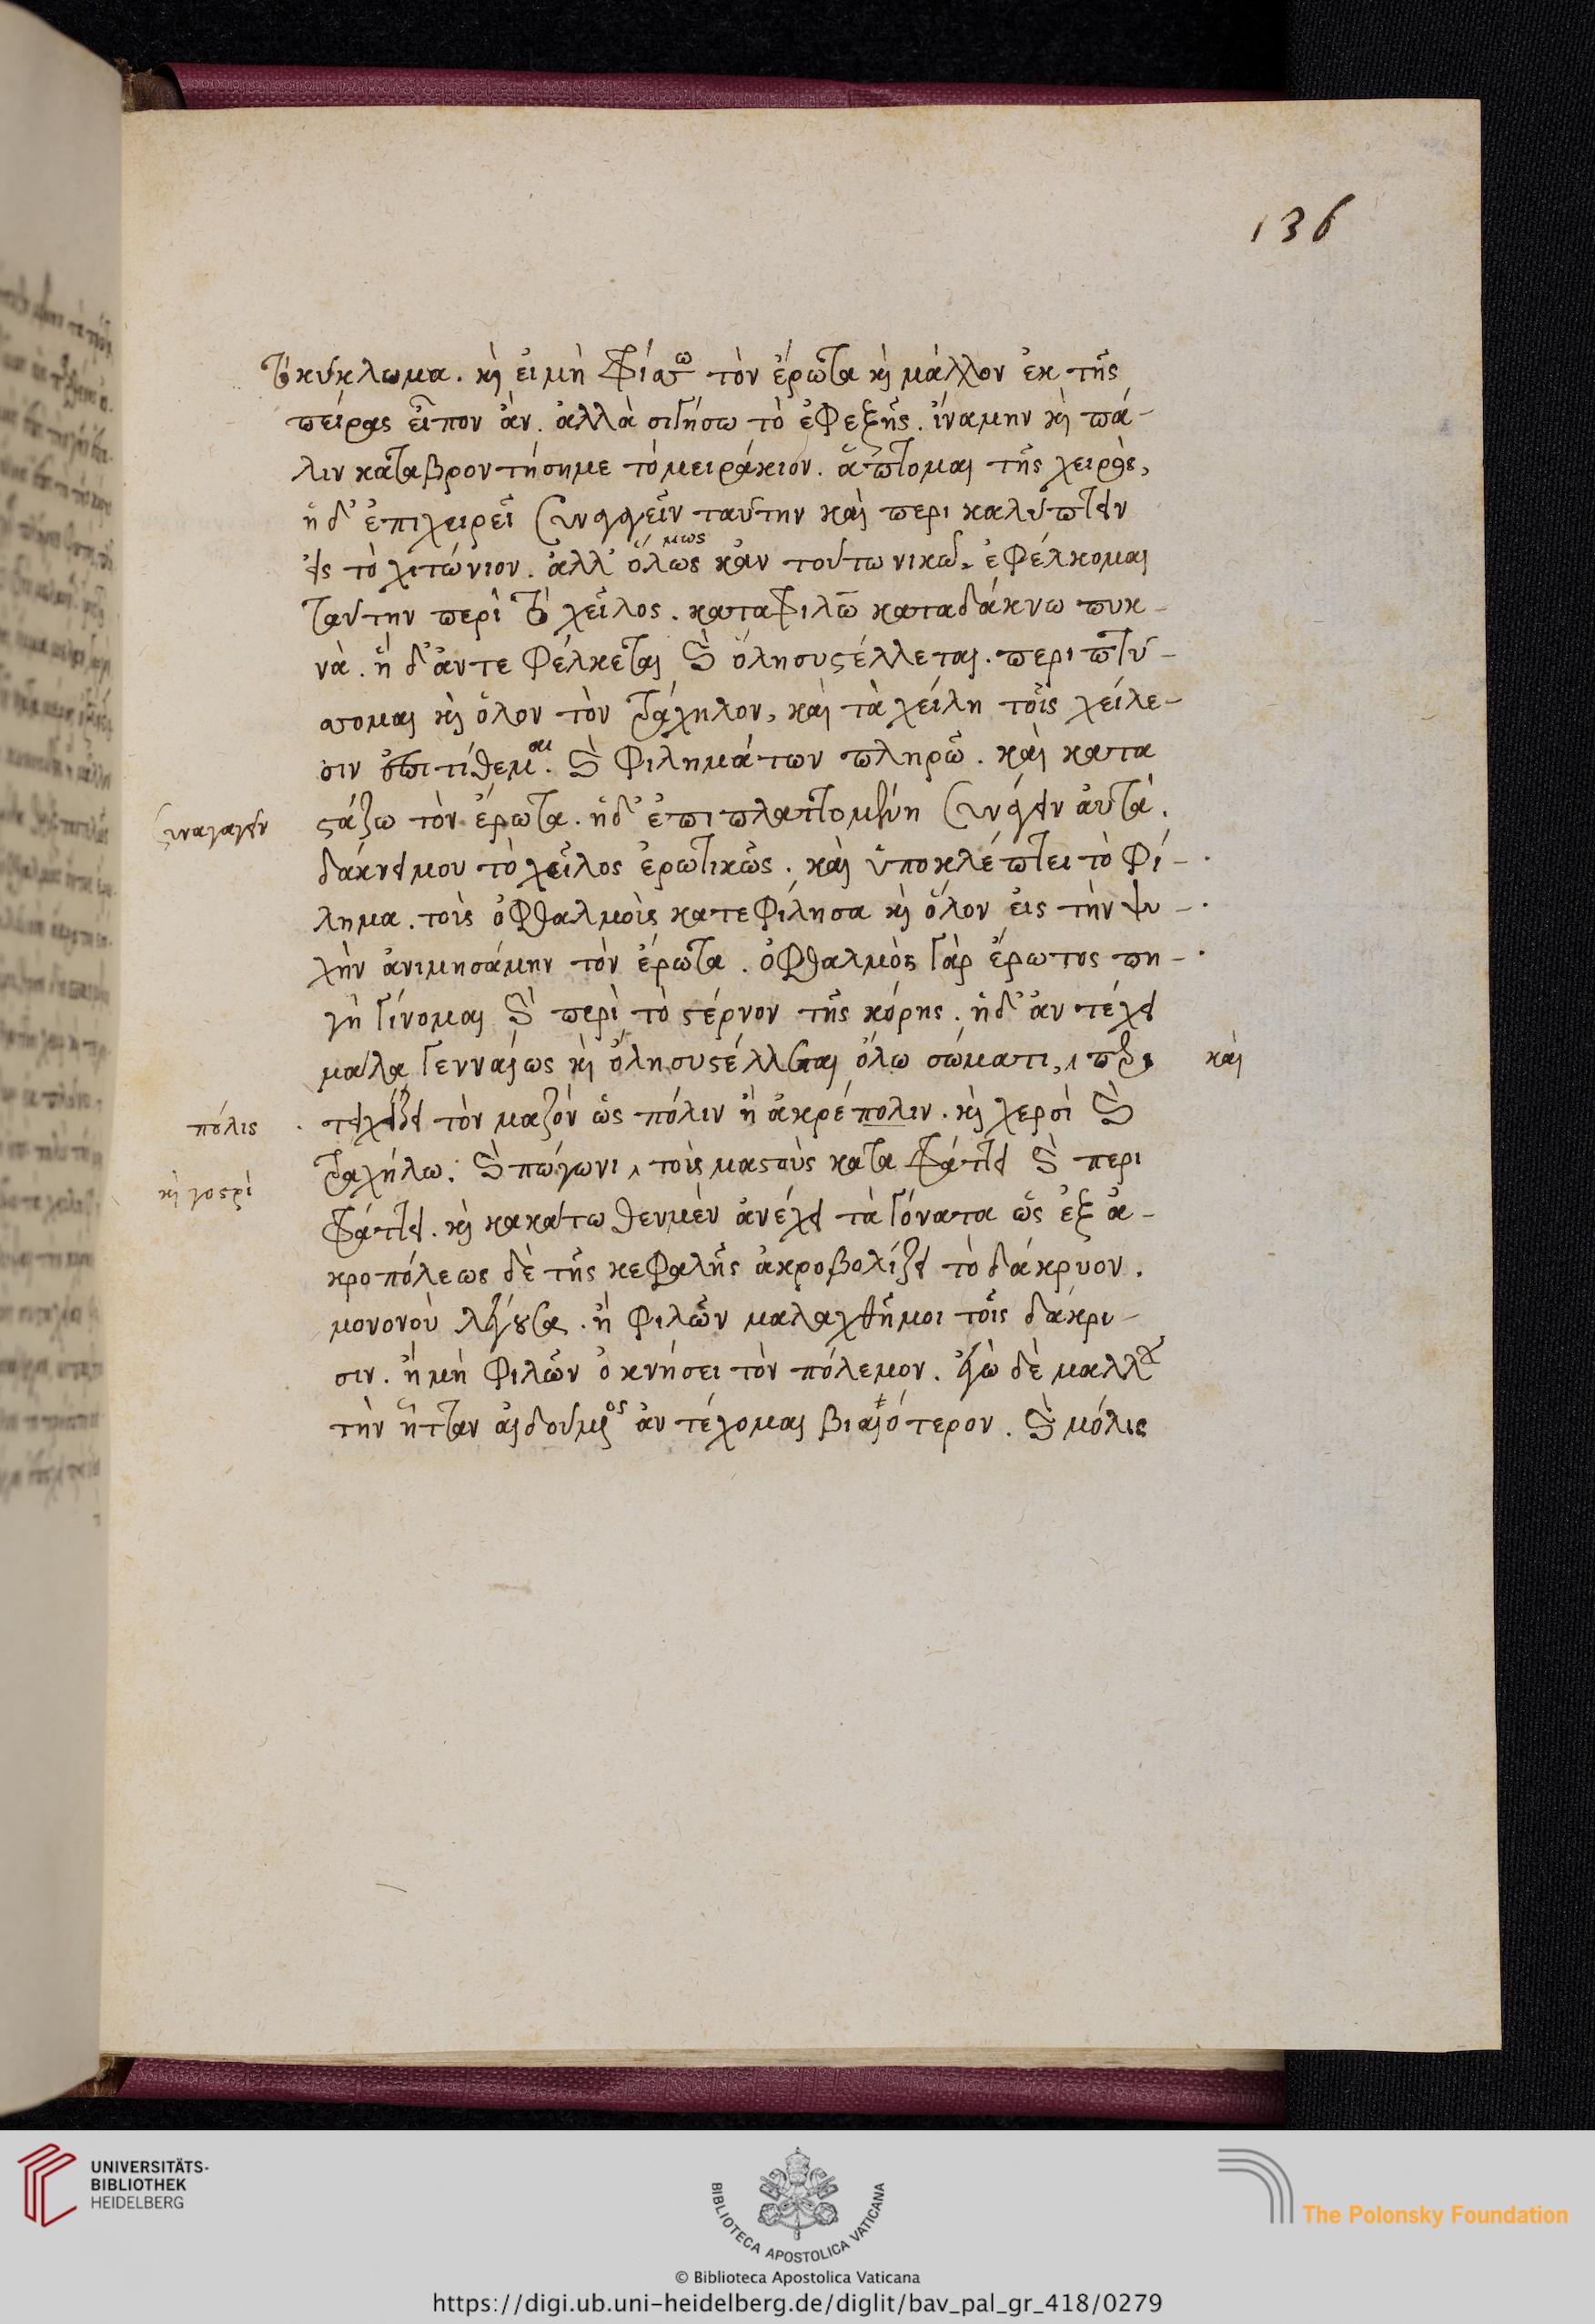 136
τὸ κύκλωμα. καὶ εἰ μὴ τὸν ἔρωτα καὶ μᾶλλον ἐκ τῆς
πείρας εἶπον ἄν. ἀλλὰ σιγήσω τὸ ἐφεξῆς. ἵνα μην καὶ πά-
λιν καταβροντήση με τὸ μειράκιον. ἅπτομαι τῆς χειρὸς,
ἡ δ' ἐπιχειρεῖ συναγαγεῖν ταύτην καὶ περικαλύπτειν
εἰς τὸ χιτώνιον. ἀλλ' ὅλως κἀν τούτω νικῶ. ἐφέλκομαι
μως
ταύτην περὶ τὸ χεῖλος. καταφιλῶ καταδάκνω πυκ-
νὰ. ἡ δ' ἀντεφέλκεται καὶ ὅλη συστέλλεται. περιπτύ-
σομαι καὶ ὅλον τὸν τράχηλον, καὶ τὰ χείλη τοῖς χείλε-
σιν ἐπιτίθεμαι. καὶ φιλημάτων πληρῶ. καὶ κατα
στάζω τὸν ἔρωτα. ἡ δ' ἐπιπλαττομένη συνάγειν αὐτά.
συναγαγεῖν
δάκνει μου τὸ χεῖλος ἐρωτικῶς. καὶ ὑποκλέπτει τὸ φί-
λημα. τοὶς ὀφθαλμοὶς κατεφίλησα καὶ ὅλον εἰς τὴν ψυ-
χὴν ἀνιμησάμην τὸν ἔρωτα. ὀφθαλμὸς γὰρ ἔρωτος πη-
γὴ γίνομαι καὶ περὶ τὸ στέρνον τῆς κόρης. ἡ δ' ἀντέχει
μάλα γενναίως καὶ ὅλη συστέλλεται ὅλω σώματι,
καὶ
τειχίζει τὸν μαζὸν ὡς πόλιν ἡ ἀκρέπολιν. καὶ χερσὶ καὶ
πόλις
τραχήλω. καὶ πώγωνι, τοὺς μαστοὺς καταφράττει καὶ περι
φράττει. καὶ κακάτωθεν μὲν ἀνέχει τὰ γόνατα ὡς ἐξ ἀ-
κροπόλεως δὲ τῆς κεφαλῆς ἀκροβολίζει τὸ δάκρυον.
μονονοὺ λέγουσα. ἢ φιλῶν μαλαχθῆ μοι τοῖς δάκρυ-
σιν. ἢ μὴ φιλῶν ὀκνήσει τὸν πόλεμον. ἐγὼ δὲ μᾶλλον
τὴν ἧτταν αἰδούμενος ἀντέχομαι βιαιότερον. καὶ μόλις
UNIVERSITÄTS-
BIBLIOTHEK
HEIDELBERG
BIBLIOTECA APOSTOLICA VATICANA
The Polonsky Foundation
© Biblioteca Apostolica Vaticana
https://digi.ub.uni-heidelberg.de/diglit/bav_pal_gr_418/0279